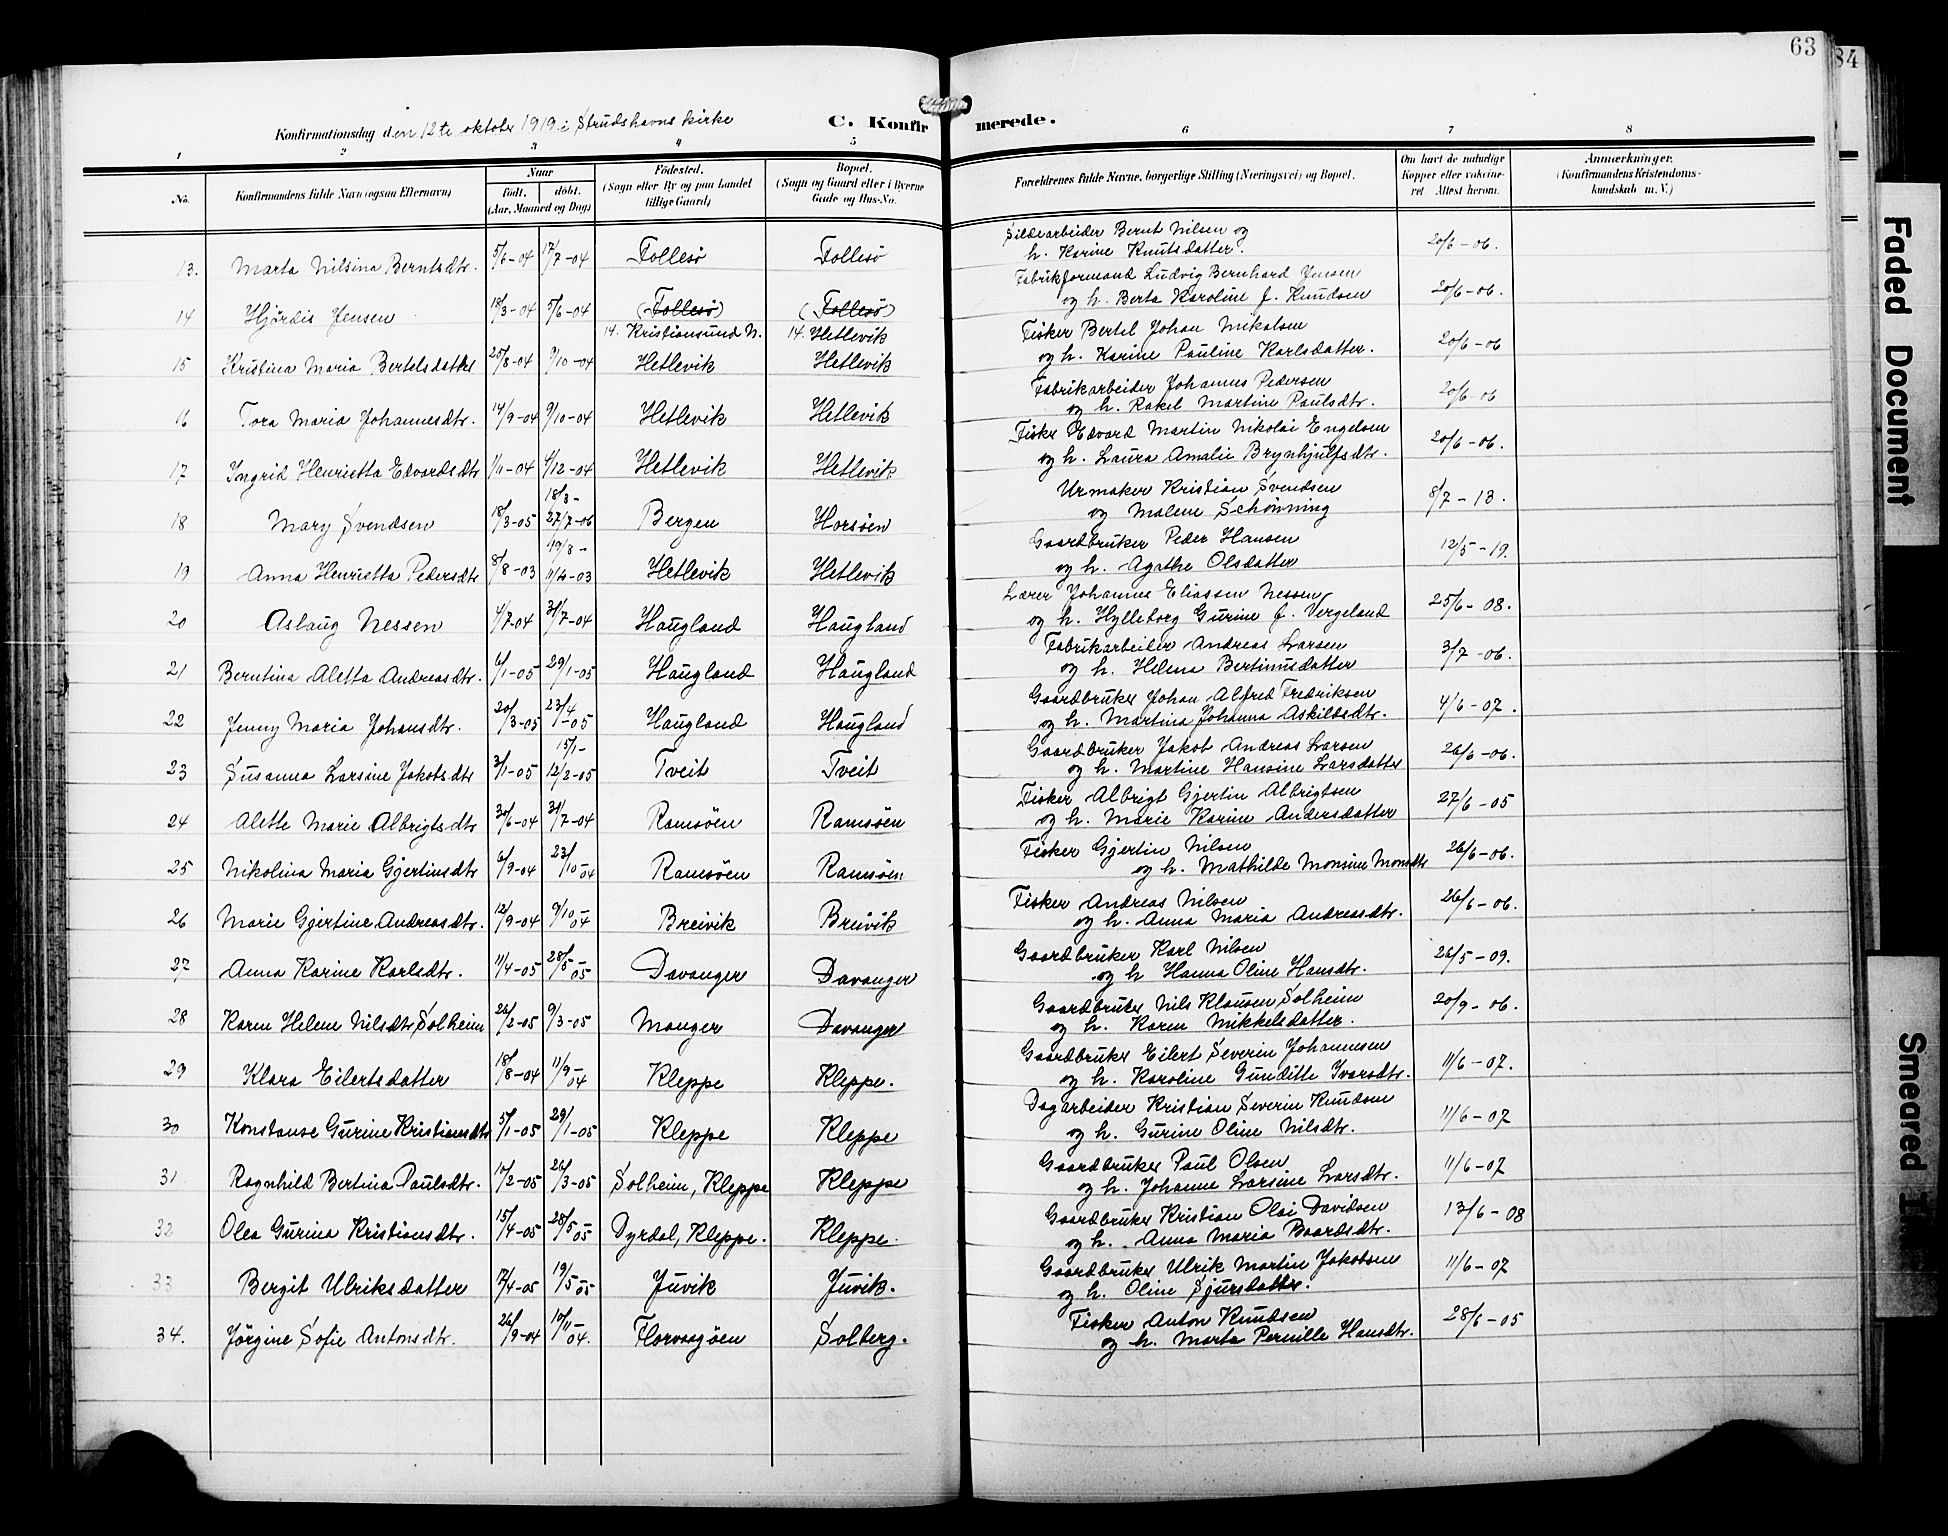 63
84
Konfirmationsdag den 12te oktober 1919 i Strudshavns kirke
C. Konfirmerede.
1 2 3 4 5 6 7 8
No. Konfirmandens fulde Navn (ogsaa Efternavn) Naar født, døbt. (Aar, Maaned og Dag) Fødested. (Sogn eller By og paa Landet tillige Gaard) Bopæl. (Sogn og Gaard eller i Byerne Gade og Hus-No. Forældrenes fulde Navne, borgerlige Stilling (Næringsvei) og Bopæl. Om havt de naturlige Kopper eller vaksineret. Attest herom. Anmærkninger. (Konfirmandens Kristendomskundskab m. V.)
13. Marta Nilsina Berntsdtr. 5/6-04 17/7-04 Follesö Follesö Sildearbeider Bernt Nilsen og h. Karine Knutsdatter. 20/6-06.
14 Hjørdis Jensen 18/3-04 5/6-04 (Follesö) (Follesö) Fabrikformand Ludvig Bernhard Jensen og h. Berta Karoline f. Knudsen 20/6-06.
14. Kristiansund N. 14. Hetlevik
15 Kristina Maria Bertelsdatter 25/8-04 9/10-04 Hetlevik Hetlevik Fisker Bertel Johan Nikolsen og h. Karine Pauline Karlsdatter. 20/6-06
16 Tora Maria Johannesdtr. 14/9-04 9/10-04 Hetlevik Hetlevik Fabrikarbeider Johannes Pedersen og h. Rakel Martine Paulsdtr. 20/6-06
17 Ingrid Henrietta Edvardsdtr 1/11-04 4/12-04 Hetlevik Hetlevik Fisker Edvard Martin Nikolai Engelsen og h. Laura Amalie Brynhjulfsdtr. 20/6-06.
18 Mary Svendsen 18/3-05 18/3- 27/7-06 Bergen Horsöen Urmaker Kristian Svendsen og Malene Schönning 8/7-13.
19 Anna Henrietta Pedersdtr 8/8-03 19/8- 11/10-03 Hetlevik Hetlevik Gaardbruker Peder Hansen og h. Agathe Olsdatter 12/5-19.
20 Aslaug Nessen 4/7-04 31/7-04 Haugland Haugland Lærer Johannes Eliassen Nessen og h. Hylleborg Gurine f. Vergeland 25/6-08.
21 Berntina Aletta Andreasdtr. 6/1-05 29/1-05 Haugland Haugland Fabrikarbeider Andreas Larsen og h. Helena Bertinusdatter 3/7-06.
22 Jenny Maria Johansdtr. 20/3-05 23/4-05 Haugland Haugland Gaardbruker Johan Alfred Fredriksen og h. Martina Johanna Askildsdtr. 4/6-07.
23 Susanna Larsine Jakobsdtr 3/1-05 15/1- 12/2-05 Tveit Tveit Gaardbruker Jakob Andreas Larsen og h. Martine Hansine Larsdatter 26/6-06.
24 Alette Marie Albrigtsdtr 30/6-04 31/7-04 Ramsöen Ramsöen Fisker Albrigt Gjertin Albrigtsen og h. Marie Karine Andersdatter 27/6-05
25 Nikolina Maria Gjertinsdtr 6/9-04 23/10-04 Ramsöen Ramsöen Fisker Gjertin Nilsen og h. Mathilde Monsine Monsdtr 26/6-06.
26 Marie Gjertine Andreasdtr. 12/9-04 9/10-04 Breivik Breivik Fisker Andreas Nilsen og h. Anna Maria Andreasdtr. 26/6-06.
27 Anna Karine Karlsdtr. 11/4-05 28/5-05 Davanger Davanger Gaardbruker Karl Nilsen og h Hanna Oline Hansdtr. 26/5-09.
28 Karen Helene Nilsdtr Solheim 26/2-05 9/3-05 Manger Davanger Gaardbruker Nils Klausen Solheim og h. Karen Mikkelsdatter. 20/9-06.
29 Klara Eilertsdatter 18/8-04 11/9-04 Kleppe Kleppe. Gaardbruker Eilert Severin Johannesen og h. Karoline Gunditte Ivarsdtr. 11/6-07.
30 Konstanse Gurine Kristiansdtr 5/1-05 29/1-05 Kleppe Kleppe Dagarbeider Kristian Severin Knudsen og h. Gurine Oline Nilsdtr. 11/6-07
31 Ragnhild Bertina Paulsdtr. 10/2-05 26/3-05 Solheim, Kleppe Kleppe Gaardbruker Paul Olsen og h. Johanne Larsine Larsdtr. 11/6-07
32 Olea Gurina Kristiansdtr. 15/4-05 28/5-05 Dyrdal, Kleppe. Kleppe. Gaardbruker Kristian Olai Davidsen og h. Anna Maria Baardsdtr. 13/6-08
33 Bergit Ulriksdatter 7/4-05 19/5-05 Juvik Juvik. Gaardbruker Ulrik Martin Jakobsen og h. Oline Sjursdatter. 11/6-07
34. Jörgine Sofie Antonsdtr. 26/9-04 10/11-04. Florvaagöen Solberg. Fisker Anton Knudsen og h. Marta Pernille Hansdtr. 28/6-05
Faded Document
Smeared